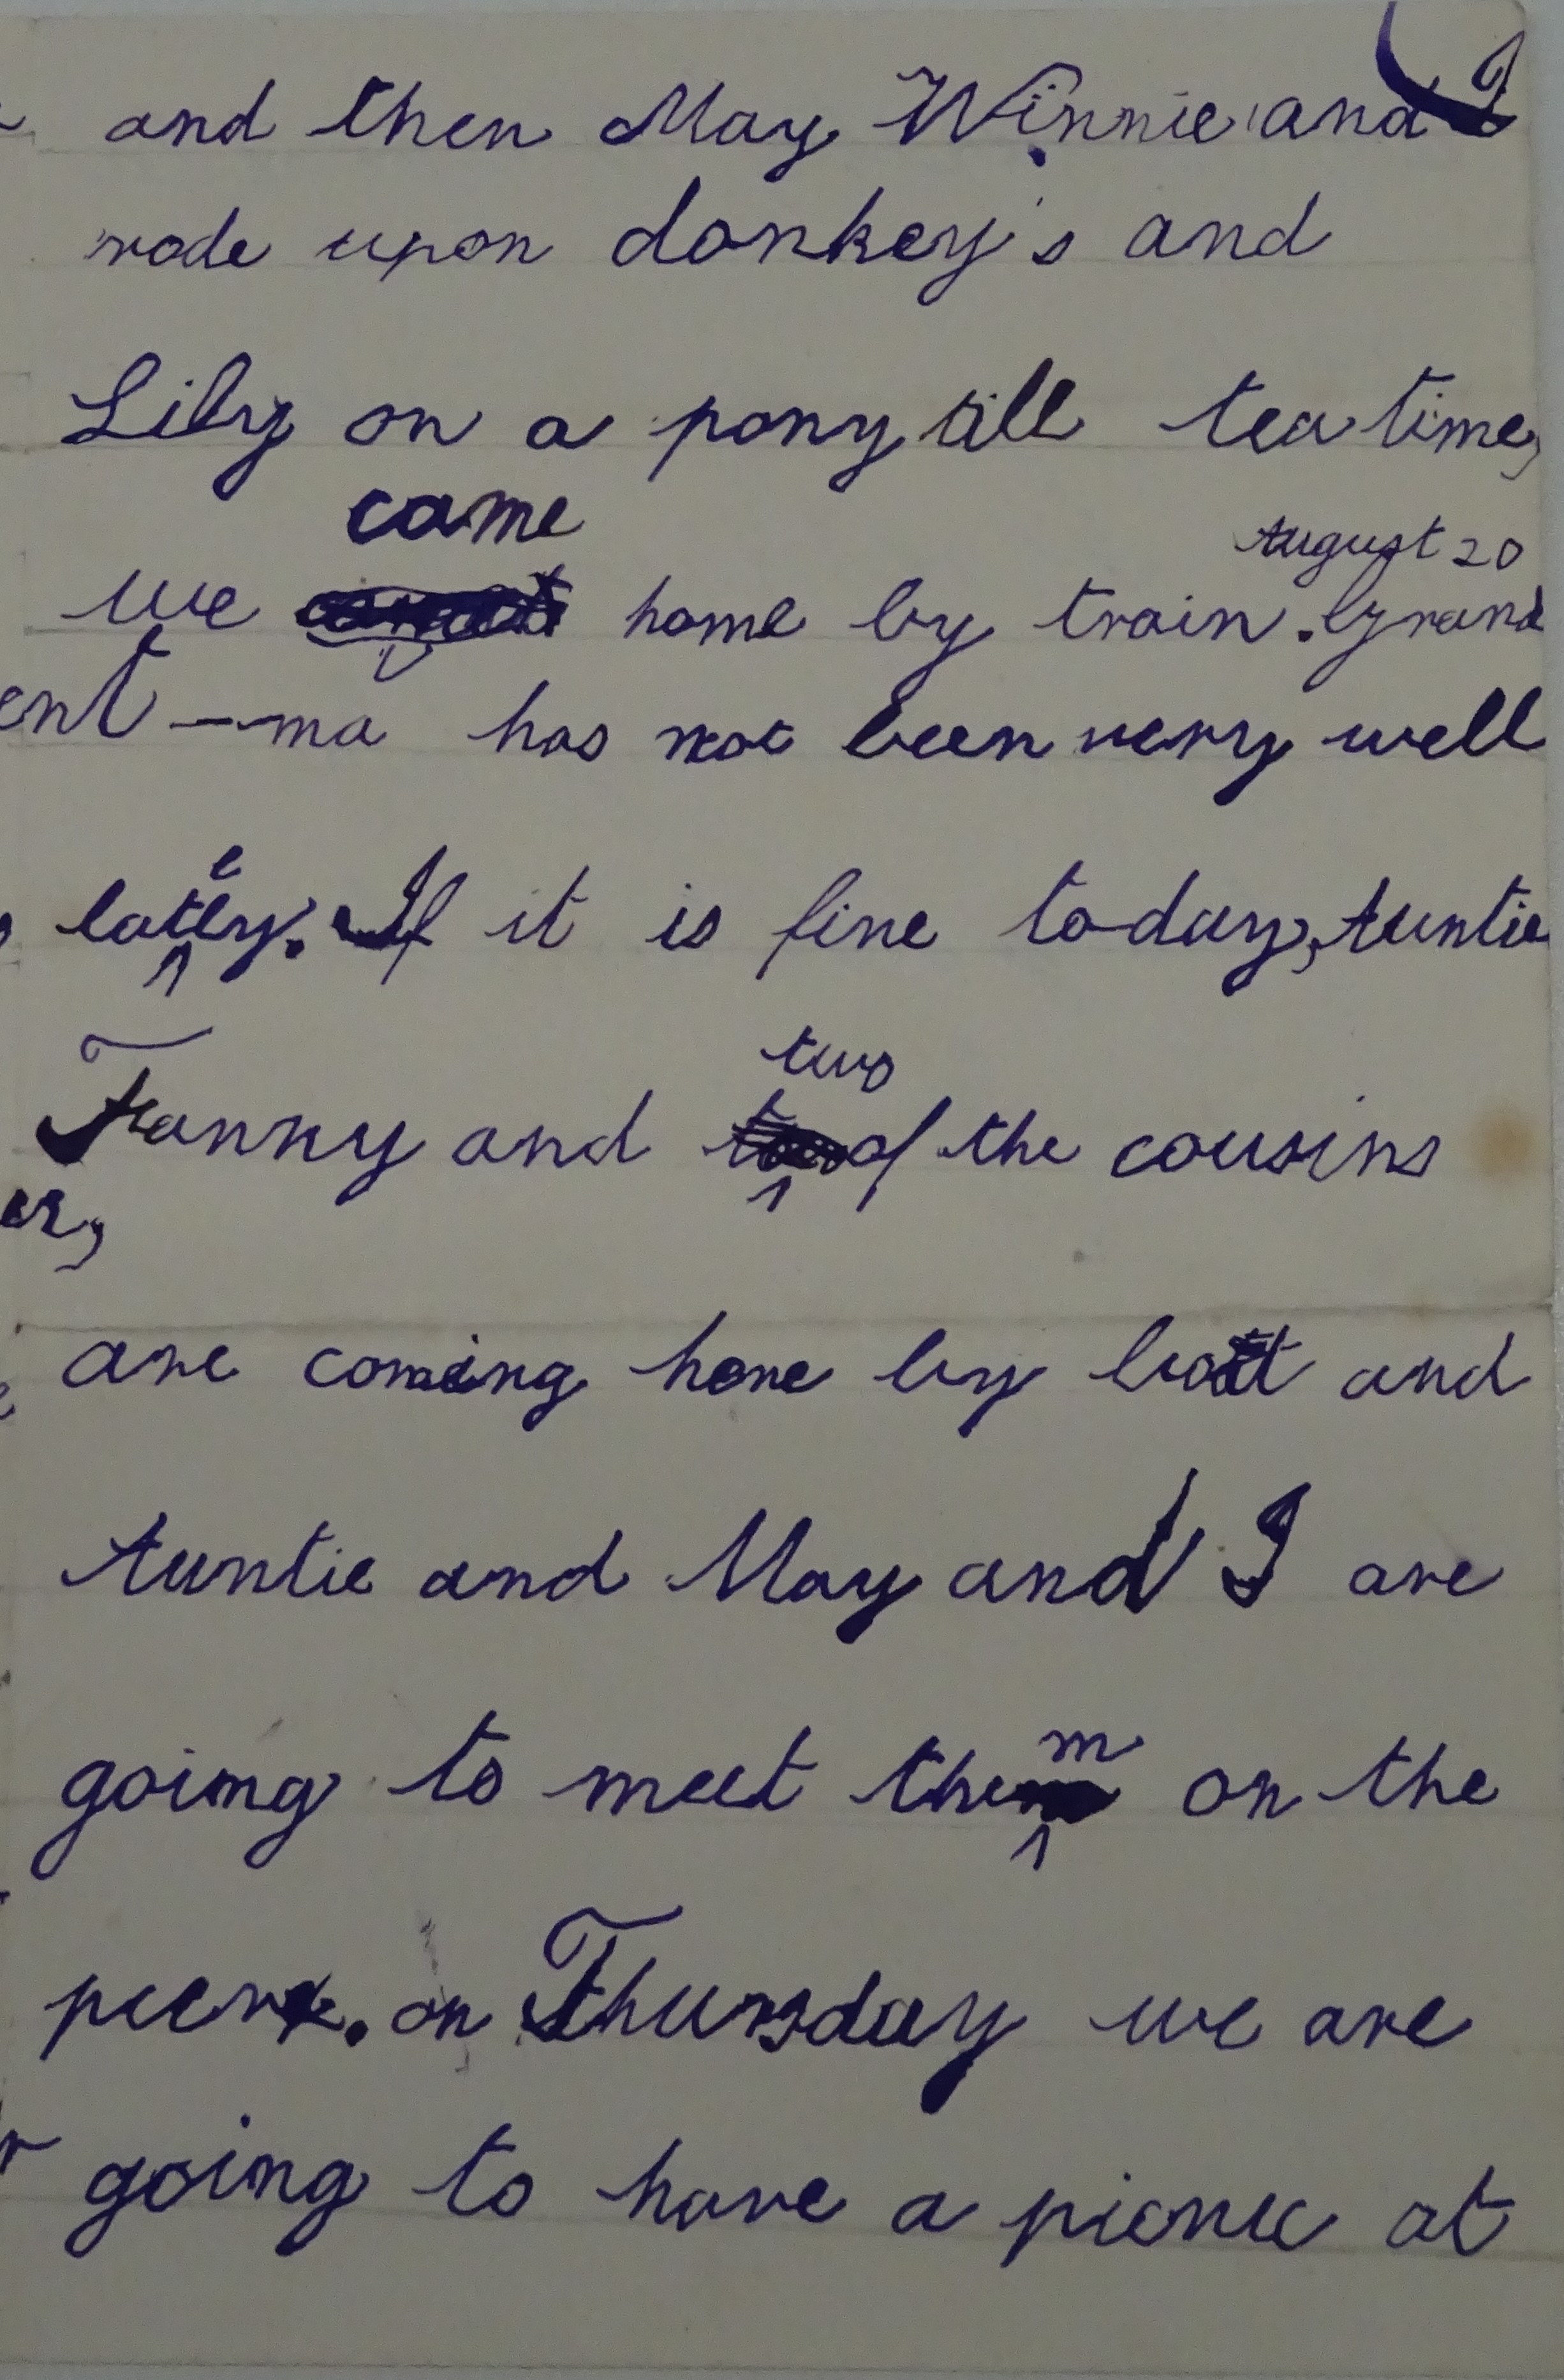 and then May Winnie and I
rode upon donkey's and
Lily on a pony till tea time,
came
august 20
we home by train. Grand
ent -ma has not been very well
lately. If it is fine to-day, Auntie
two
Fanny and of the cousins
er,
are coming here by boat and
Auntie and May and I are
going to meet them on the
peer. on Thursday we are
going to have a picnic at